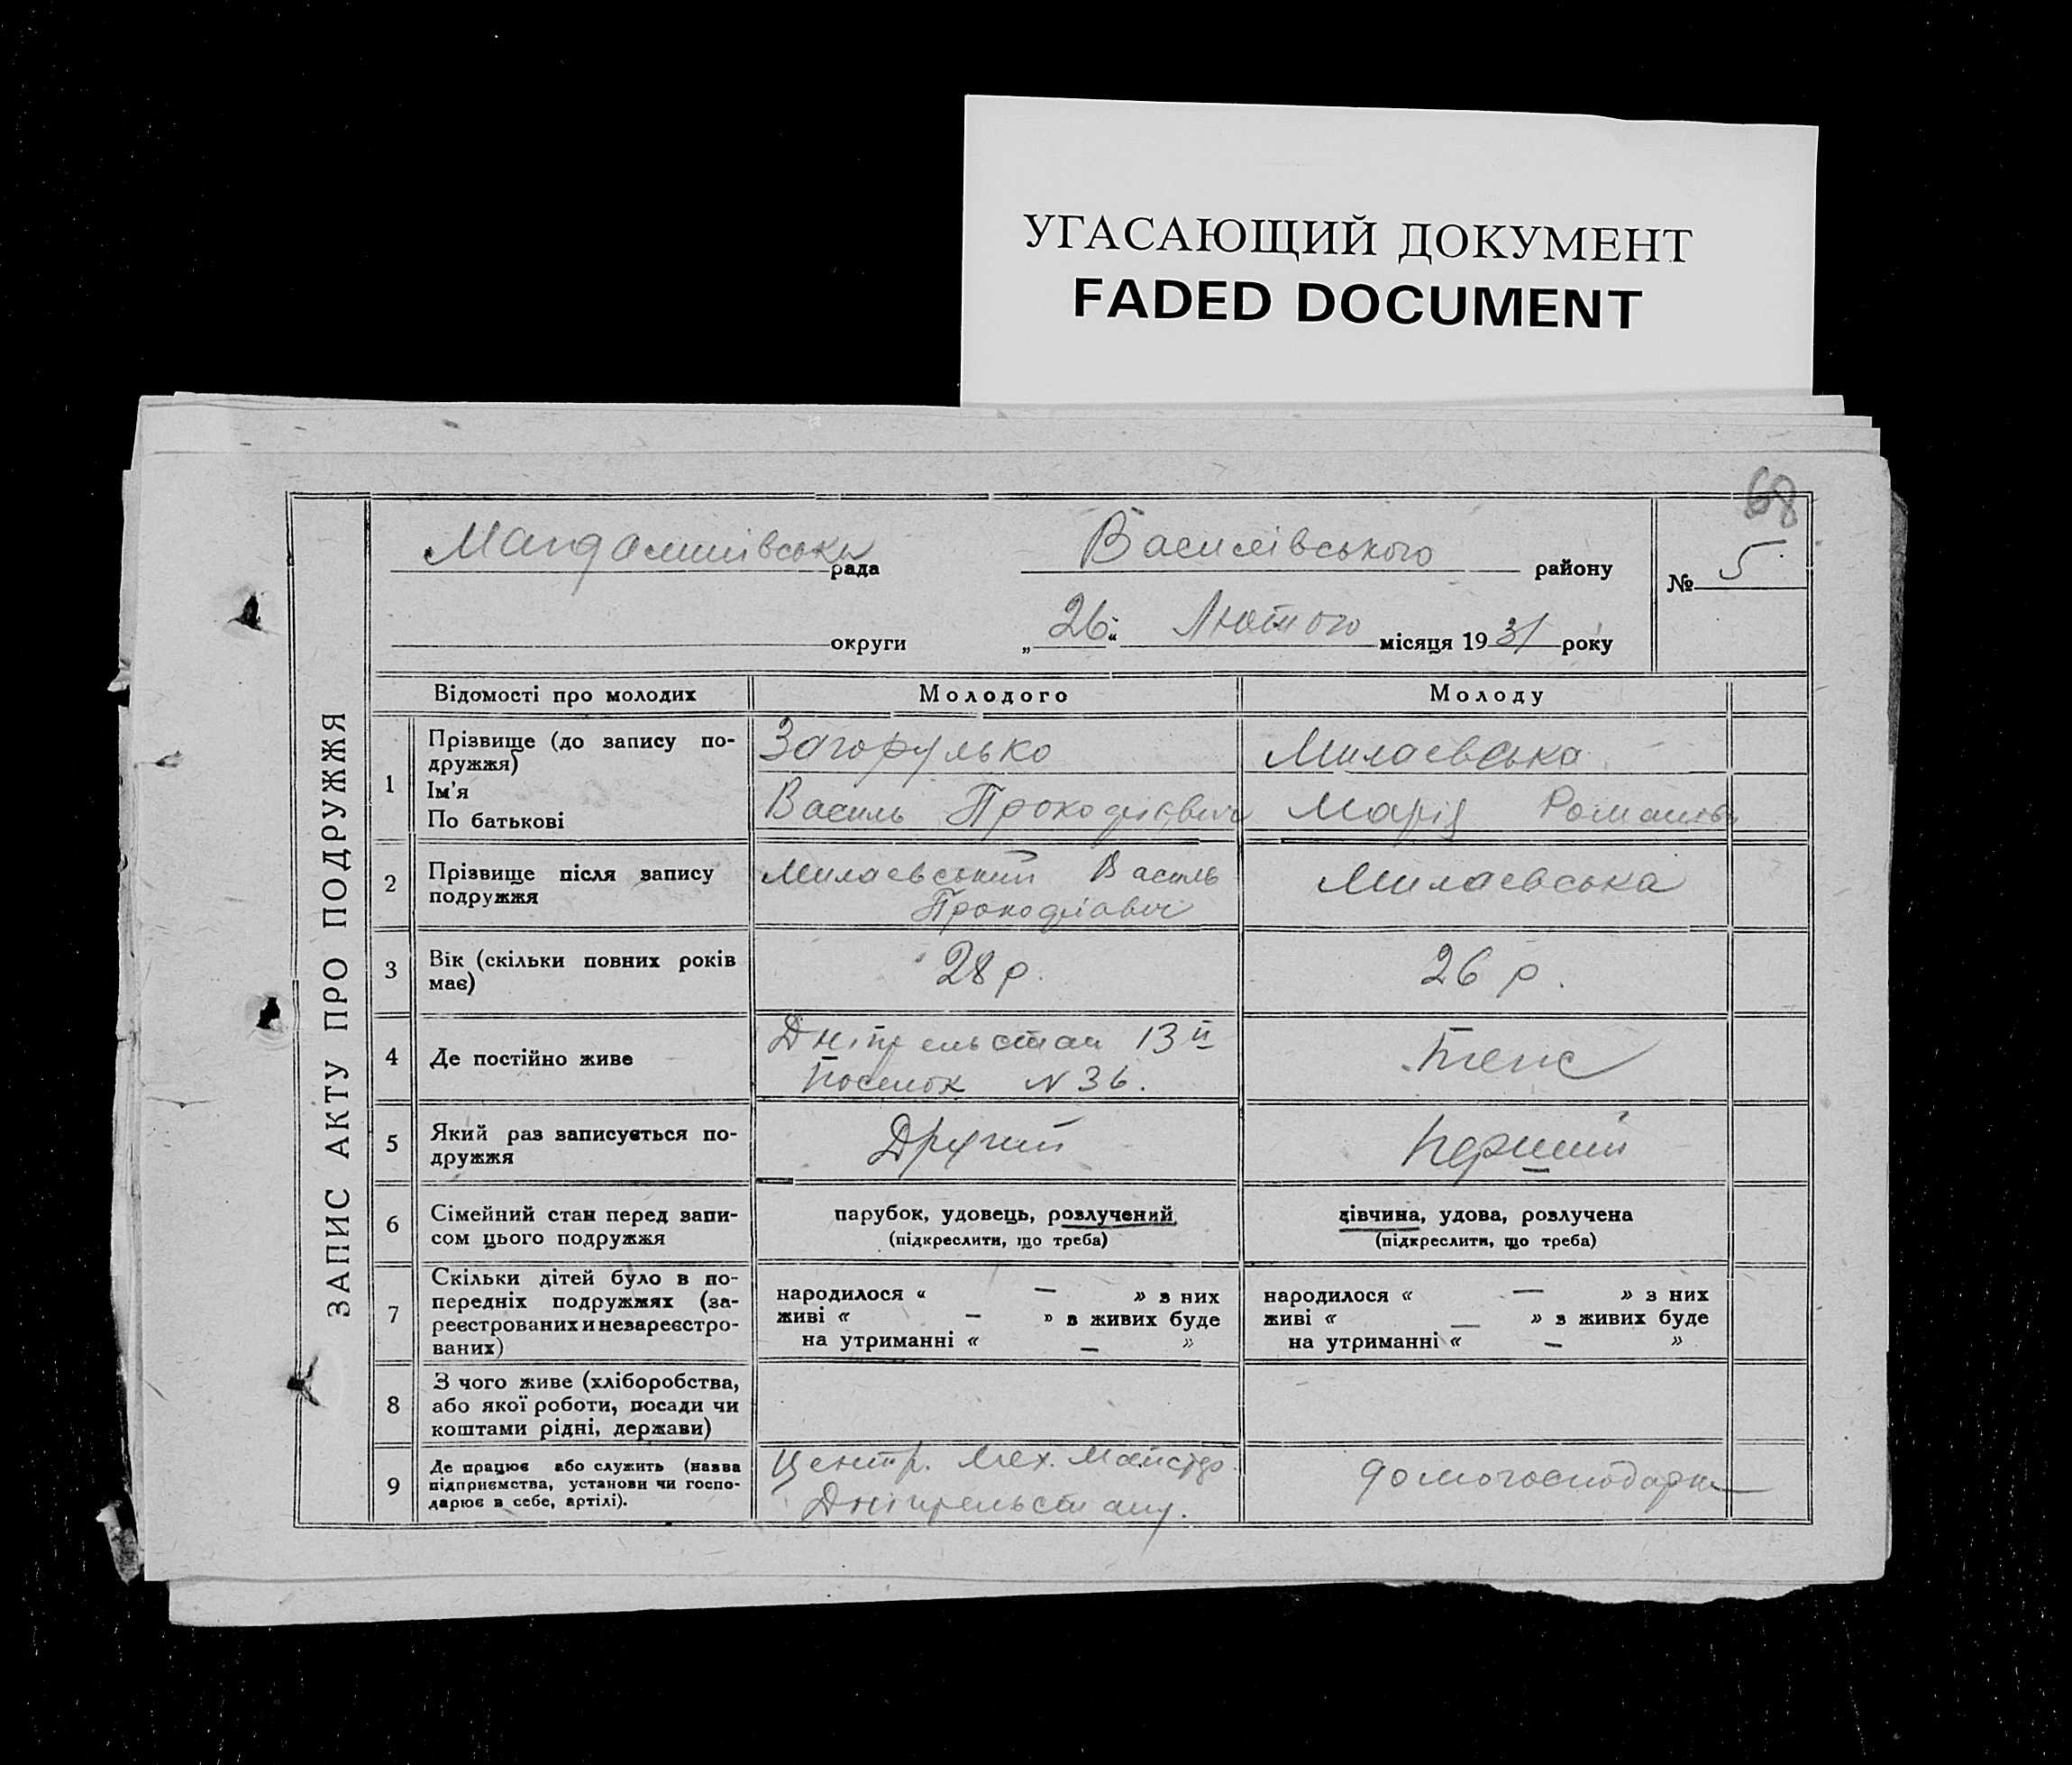 УГАСАЮЩИЙ ДОКУМЕНТ
FADED DOCUMENT
68
ЗАПИС АКТУ ПРО ПОДРУЖЖЯ
рада Василівського району № 5
округи „26“ Лютого місяця 1931 року
Відомості про молодих Молодого Молоду
1 Прізвище (до запису по-
дружжя) Загорулько Милаевська
Ім'я
По батькові Василь Прокофієвич Марія Романівн
2 Прізвище після запису
подружжя Милаевський Василь Милаевська
Прокофіович
3 Вік (скільки повних років
має) 28 р. 26 р.
4 Де постійно живе Дніпрельстан 13й
Поселок N 36.
5 Який раз записується по-
дружжя Другий Перший
6 Сімейний стан перед запи-
сом цього подружжя
парубок, удовець, розлучений
(підкреслити, що треба)
дівчина, удова, розлучена
(підкреслити, що треба)
7 Скільки дітей було в по-
передніх подружжях (за-
реєстрованих и незареєстро-
ваних)
народилося « — » з них
живі « — » з живих буде
на утриманні « — »
народилося « — » з них
живі « — » з живих буде
на утриманні « — »
8 З чого живе (хліборобства,
або якої роботи, посади чи
коштами рідні, держави)
9 Де працює або служить (назва
підприємства, установи чи госпо-
дарює в себе, артілі).
Центр. Мех. Майстр.
Дніпрельстану.
домогосподарка